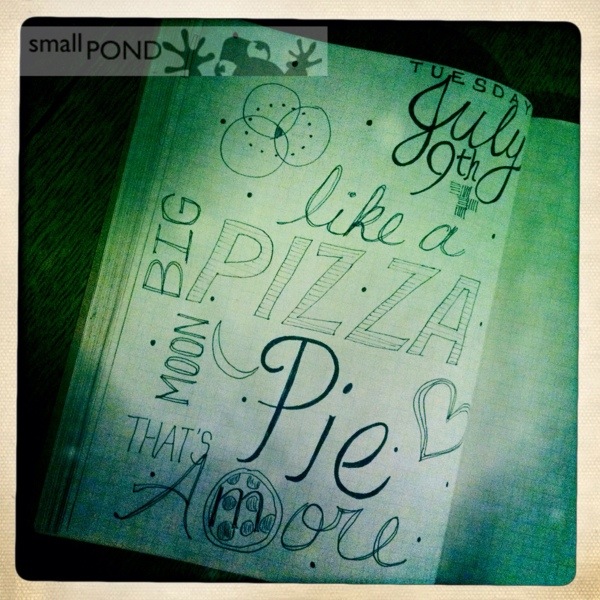 small POND
TUESDAY
July
9th
like a
BIG
PIZZA
MOON
Pie
THAT'S
Amore